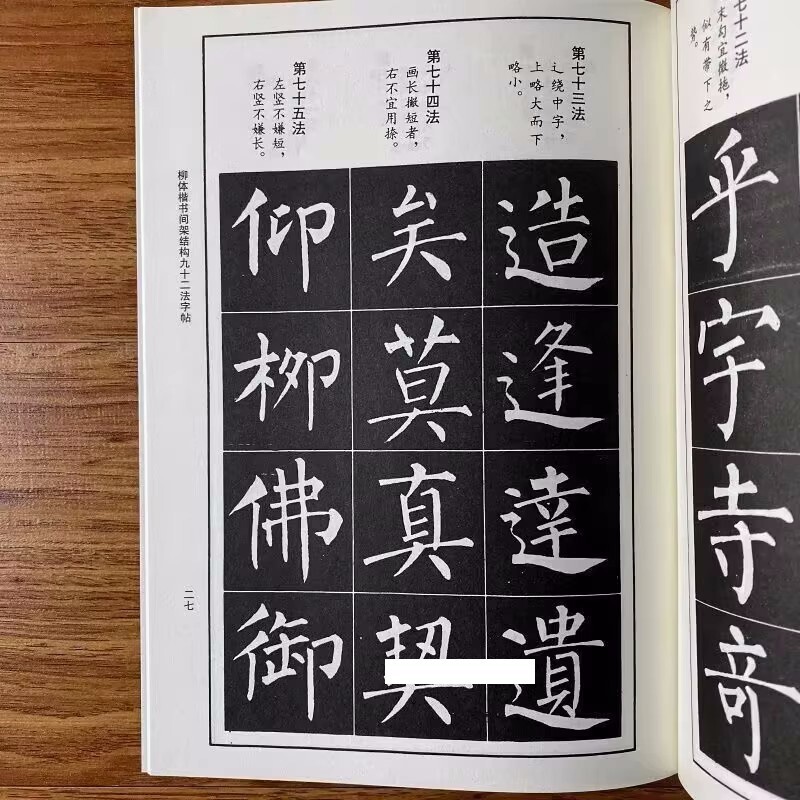 七十二法
末勾宜撇拖，
似有带下之
势。
乎宇寺奇
第七十三法
辶绕中字，
上略大而下
略小。
造逢達遺
第七十四法
画长撇短者，
右不宜用捺。
矣莫真契
第七十五法
左竖不嫌短，
右竖不嫌长。
仰柳佛御
柳体楷书间架结构九十二法字帖
二七